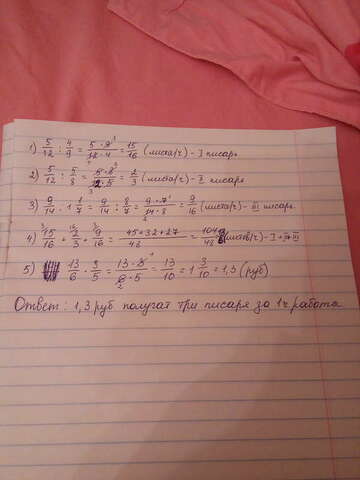 1) 5/12 : 4/9 = 5·9/12·4 = 15/16 (листа/ч) - I писарь
2) 5/12 : 5/8 = 5·8/12·5 = 2/3 (листа/ч) - II писарь
3) 9/14 : 1 1/7 = 9/14 : 8/7 = 9·7/14·8 = 9/16 (листа/ч) - III писарь
4) 15/16 + 2/3 + 9/16 = 45+32+27/48 = 104/48 (листов/ч) - I+II+III
5) 13/6 · 3/5 = 13·3/6·5 = 13/10 = 1 3/10 = 1,3 (руб)
Ответ: 1,3 руб получат три писаря за 1ч работы